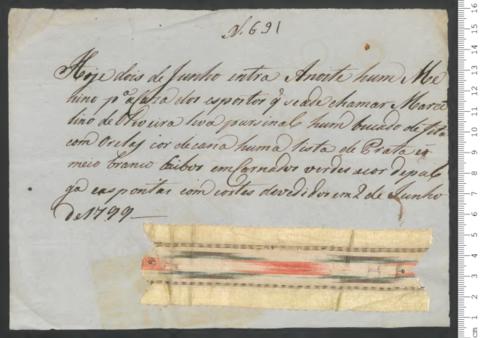 N. 691
Hoje dois de Junho entra Anoite hum Me
nino pª a Caza dos espostos q̃ se ade chamar Marce
lino de Oliveira Leva por sinal hum bucado de fita
com Orelas cor de cana huma lista de Prata no
meio branco em Carnado verdes a cor de palha
as pontas com cortes devedidos em 2 de Junho
de 1799